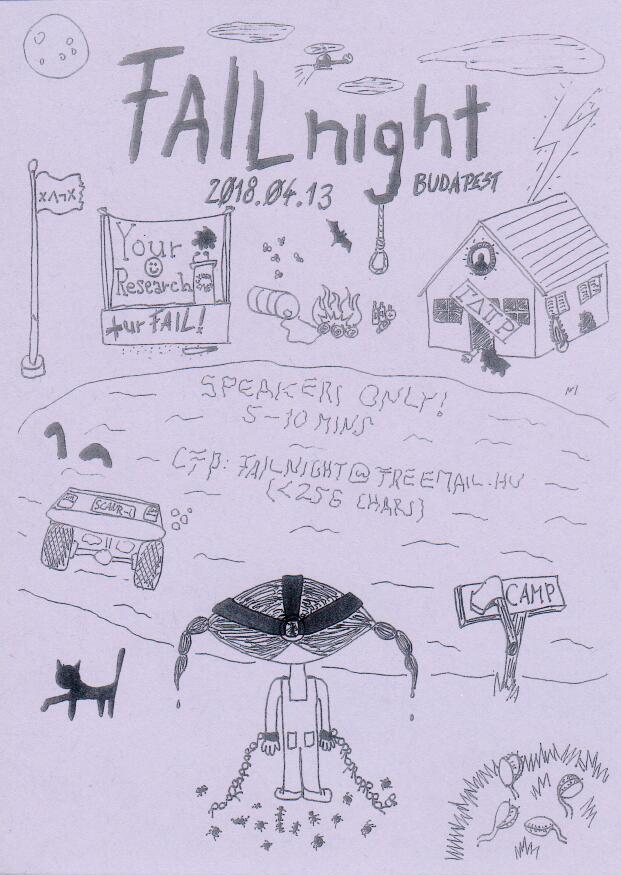 FAILnight
2018.04.13 BUDAPEST
Your
Research
FAIL!
SPEAKERS ONLY!
5-10 MINS
CFP: FAILNIGHT@FREEMAIL.HU
(<256 CHARS)
CAMP